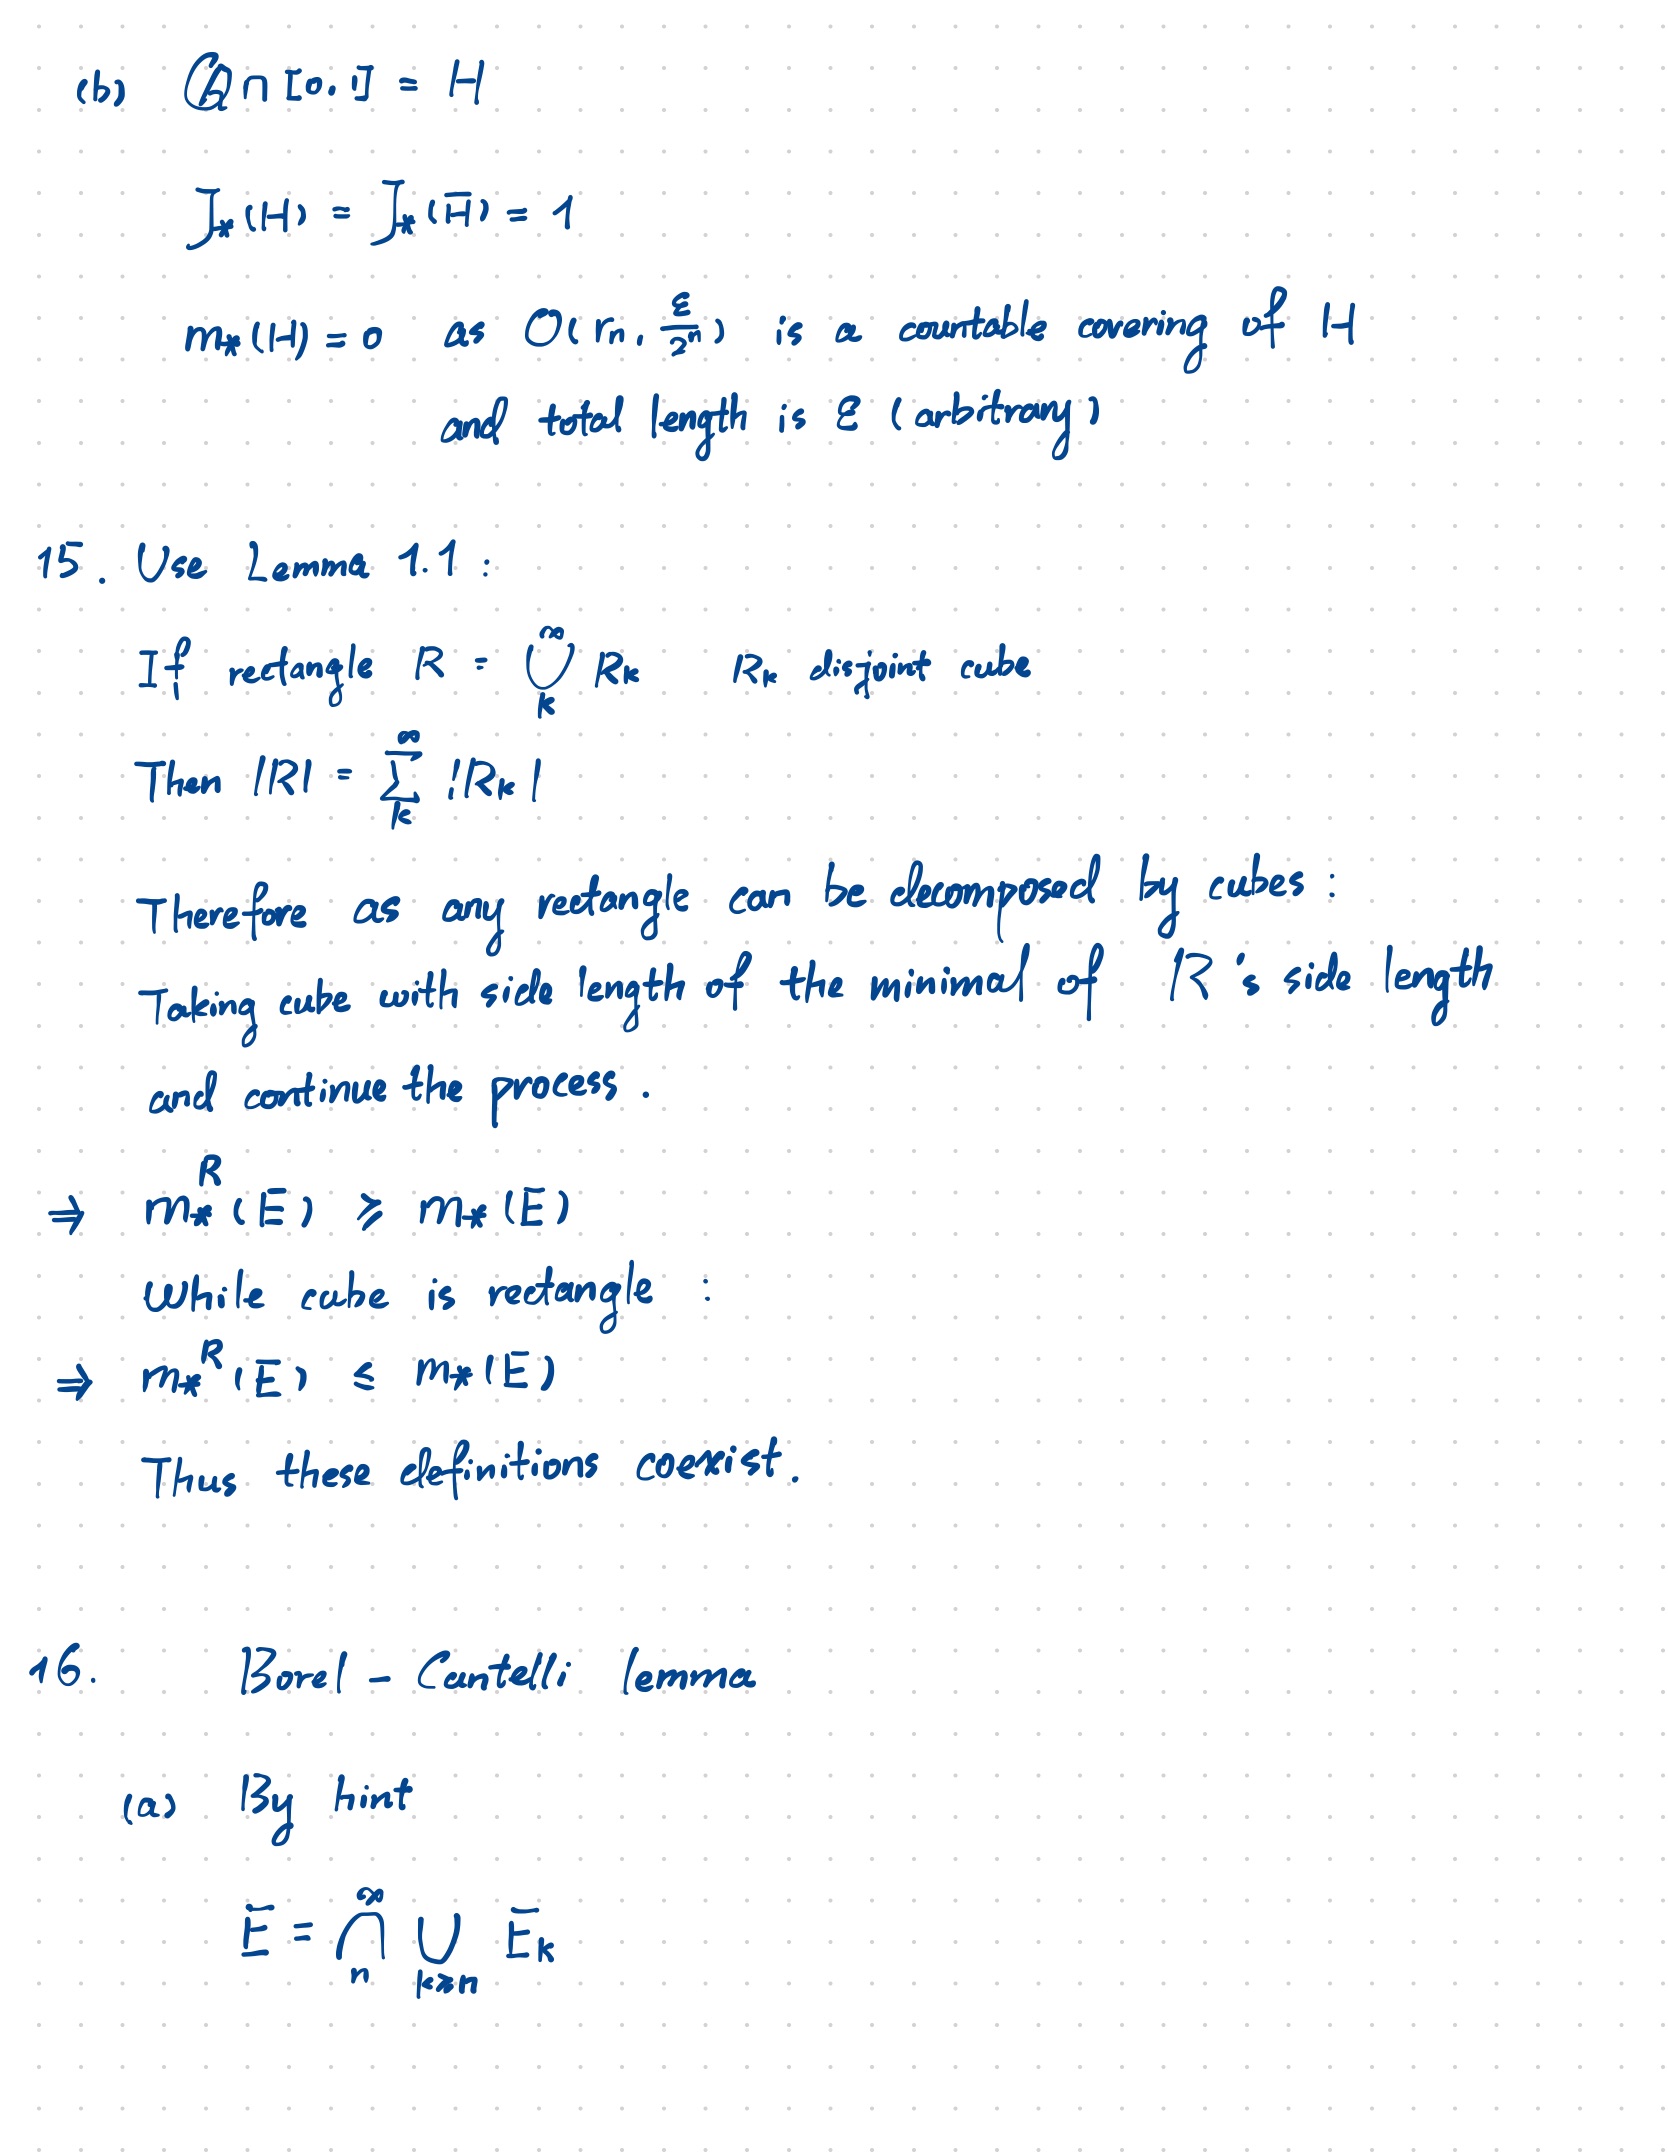 (b) ℚ ∩ [0, 1] = H
J_*(H) = J_*(H̄) = 1
m_*(H) = 0 as O(r_n, ε/2^n) is a countable covering of H
and total length is ε (arbitrary)
15. Use Lemma 1.1 :
If rectangle R = ⋃_k^∞ R_k R_k disjoint cube
Then |R| = ∑_k^∞ |R_k|
Therefore as any rectangle can be decomposed by cubes :
Taking cube with side length of the minimal of R's side length
and continue the process .
⇒ m_*^R (E) ≥ m_* (E)
While cube is rectangle :
⇒ m_*^R (E) ≤ m_* (E)
Thus these definitions coexist .
16. Borel - Cantelli lemma
(a) By hint
E = ⋂_n^∞ ⋃_{k≥n} E_k